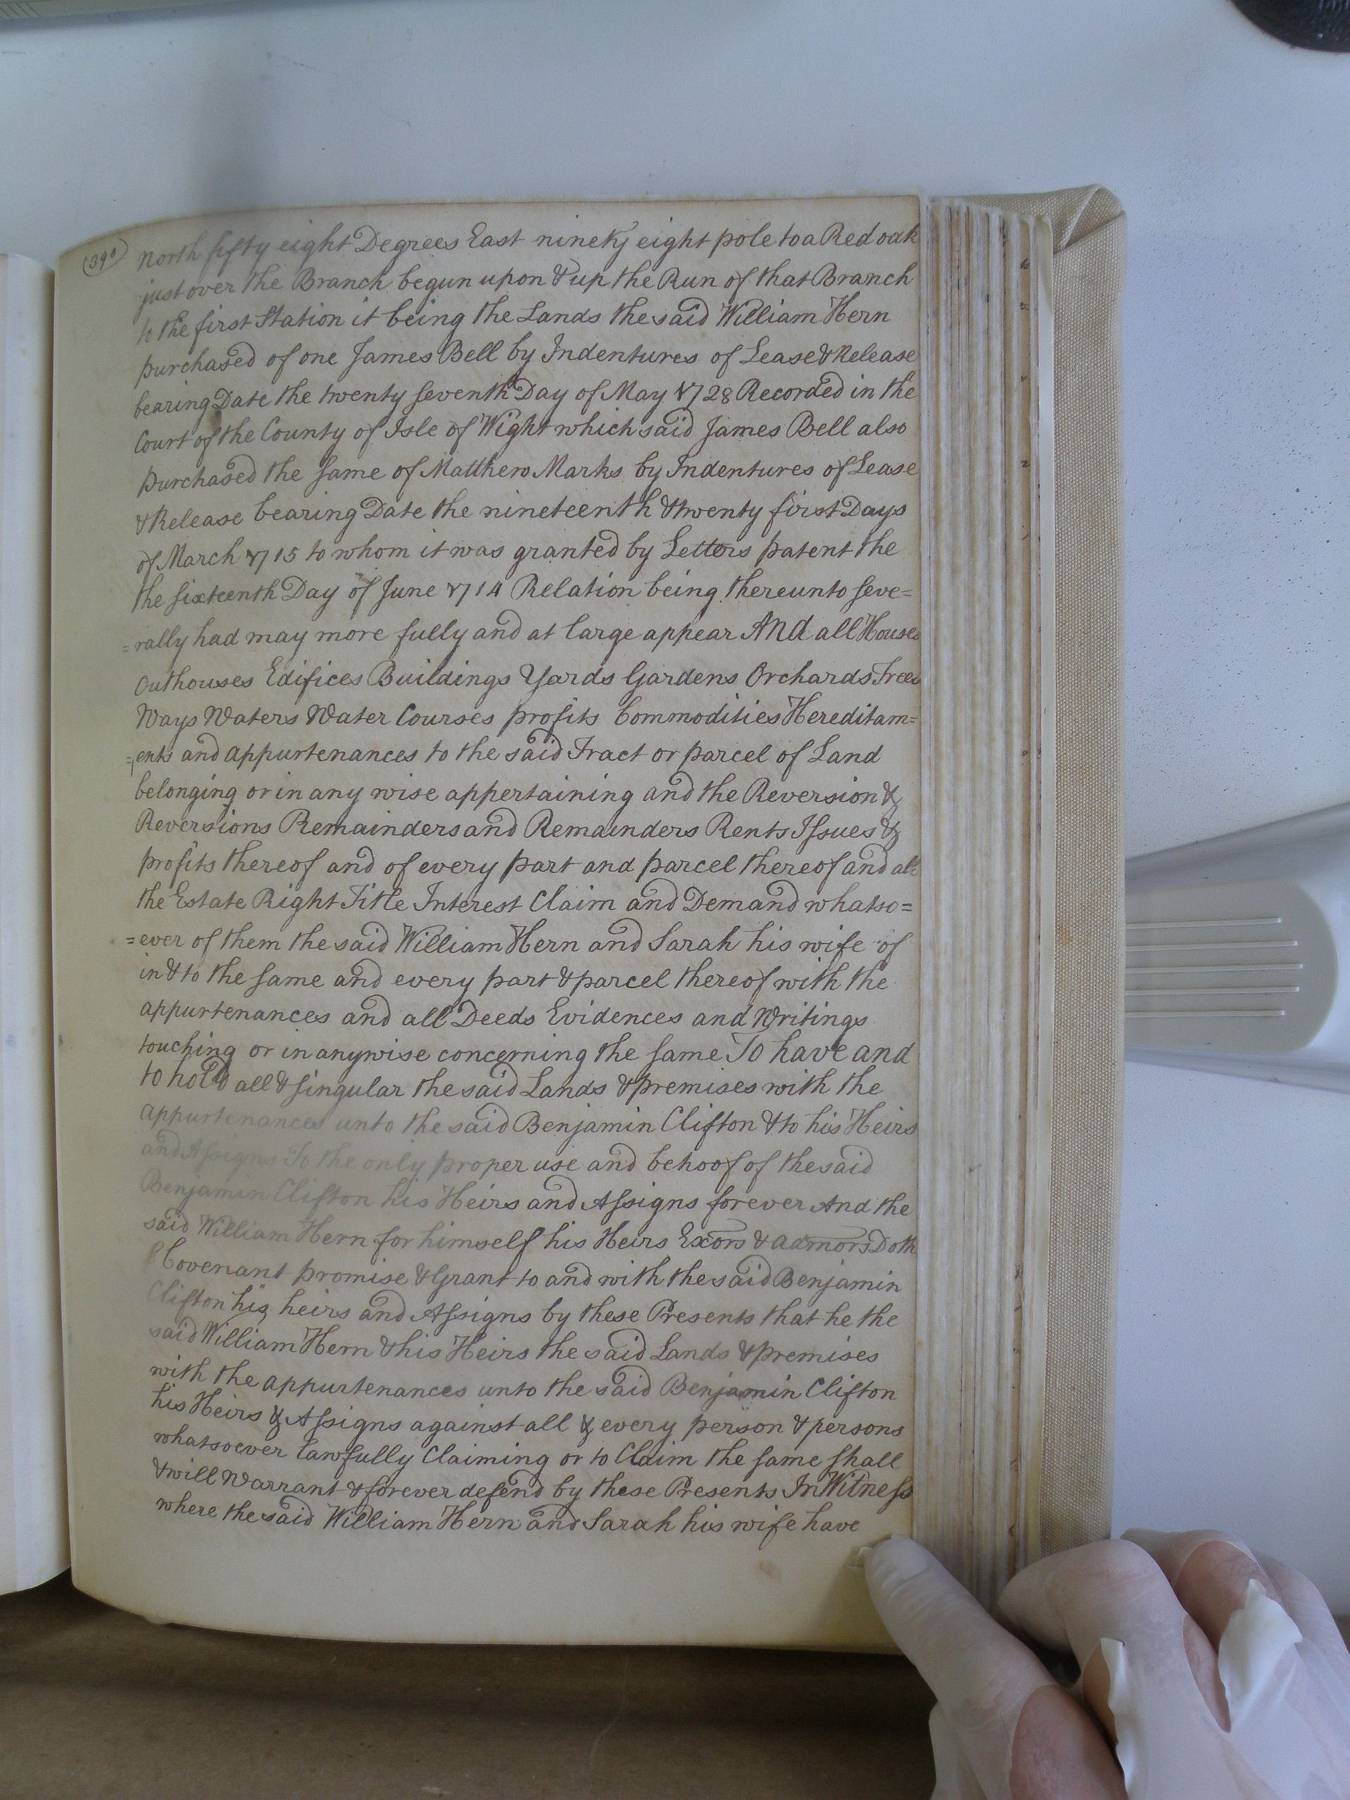 (390)
north fifty eight Degrees East ninety eight pole to a Red oak
just over the Branch begun upon & up the Run of that Branch
to the first Station it being the Lands the said William Hern
purchased of one James Bell by Indentures of Lease & Release
bearing Date the twenty seventh Day of May 1728 Recorded in the
Court of the County of Isle of Wight which said James Bell also
purchased the same of Matthew Marks by Indentures of Lease
& Release bearing Date the nineteenth & twenty first Days
of March 1715 to whom it was granted by Letters patent the
the sixteenth Day of June 1714 Relation being thereunto seve=
=rally had may more fully and at large appear And all Houses
Outhouses Edifices Buildings Yards Gardens Orchards Trees
Ways Waters Water Courses profits Commodities Hereditam=
=ents and appurtenances to the said Tract or parcel of Land
belonging or in any wise appertaining and the Reversion &
Reversions Remainders and Remainders Rents Issues &
profits thereof and of every part and parcel thereof and all
the Estate Right Title Interest Claim and Demand whatso=
=ever of them the said William Hern and Sarah his wife of
in & to the same and every part & parcel thereof with the
appurtenances and all Deeds Evidences and Writings
touching or in anywise concerning the same To have and
to hold all & singular the said Lands & premises with the
appurtenances unto the said Benjamin Clifton & to his Heirs
and Assigns To the only proper use and behoof of the said
Benjamin Clifton his Heirs and Assigns forever And the
said William Hern for himself his Heirs Exors & admors Doth
Covenant promise & Grant to and with the said Benjamin
Clifton his heirs and Assigns by these Presents that he the
said William Hern & his Heirs the said Lands & premises
with the appurtenances unto the said Benjamin Clifton
his Heirs & Assigns against all & every person & persons
whatsoever lawfully Claiming or to Claim the same shall
& will Warrant & forever defend by these Presents In Witness
where the said William Hern and Sarah his wife have